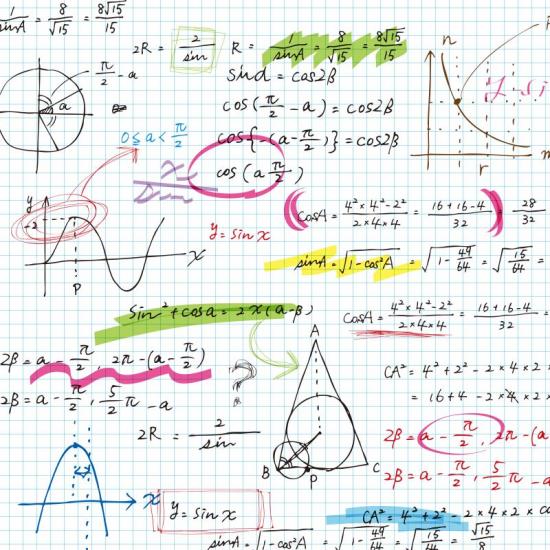 1/sinA = 8/√15 = 8√15/15
2R = 2/sin
R = 1/sinA = 8/√15 = 8√15/15
n
sind = cos2β
π/2 - a
a
cos(π/2 - a) = cos2β
0 ≦ a < π/2
cos{-(a - π/2)} = cos2β
cos(a π/2)
r
m
y
-2
x
P
y = sin x
cosA = 4²×4²-2²/2×4×4 = 16+16-4/32 = 28/32
sinA = √1-cos²A = √1-49/64 = √15/64 =
sin²+cosa = 2×(a-β)
cosA = 4²×4²-2²/2×4×4 = 16+16-4/32 =
A
2β = a - π/2, 2π-(a-π/2)
?
CA² = 4²+2²-2×4×2×
2β = a - π/2, 5/2π - a
= 16+4-2×4×2×
2R = 2/sin
2β = a - π/2, 2π-(a
B
P
C
2β = a - π/2, 5/2π - a
x
y = sin x
CA² = 4²+2²-2×4×2×
sinA = √1-cos²A = √1-49/64 = √15/64 = √15/8